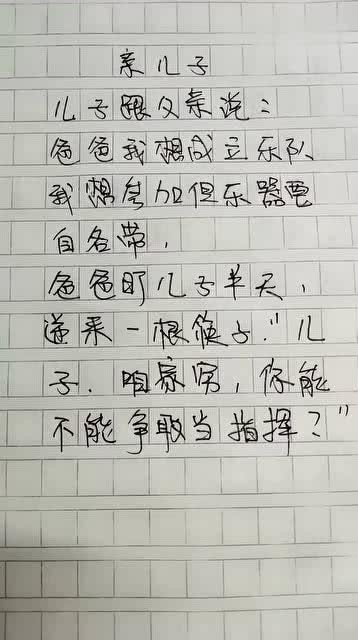 亲儿子
儿子跟父亲说：
爸爸我想成立乐队
我想参加但乐器要
自各带，
爸爸盯儿子半天，
递来一根筷子."儿
子.咱家穷，你能
不能争取当指挥？"